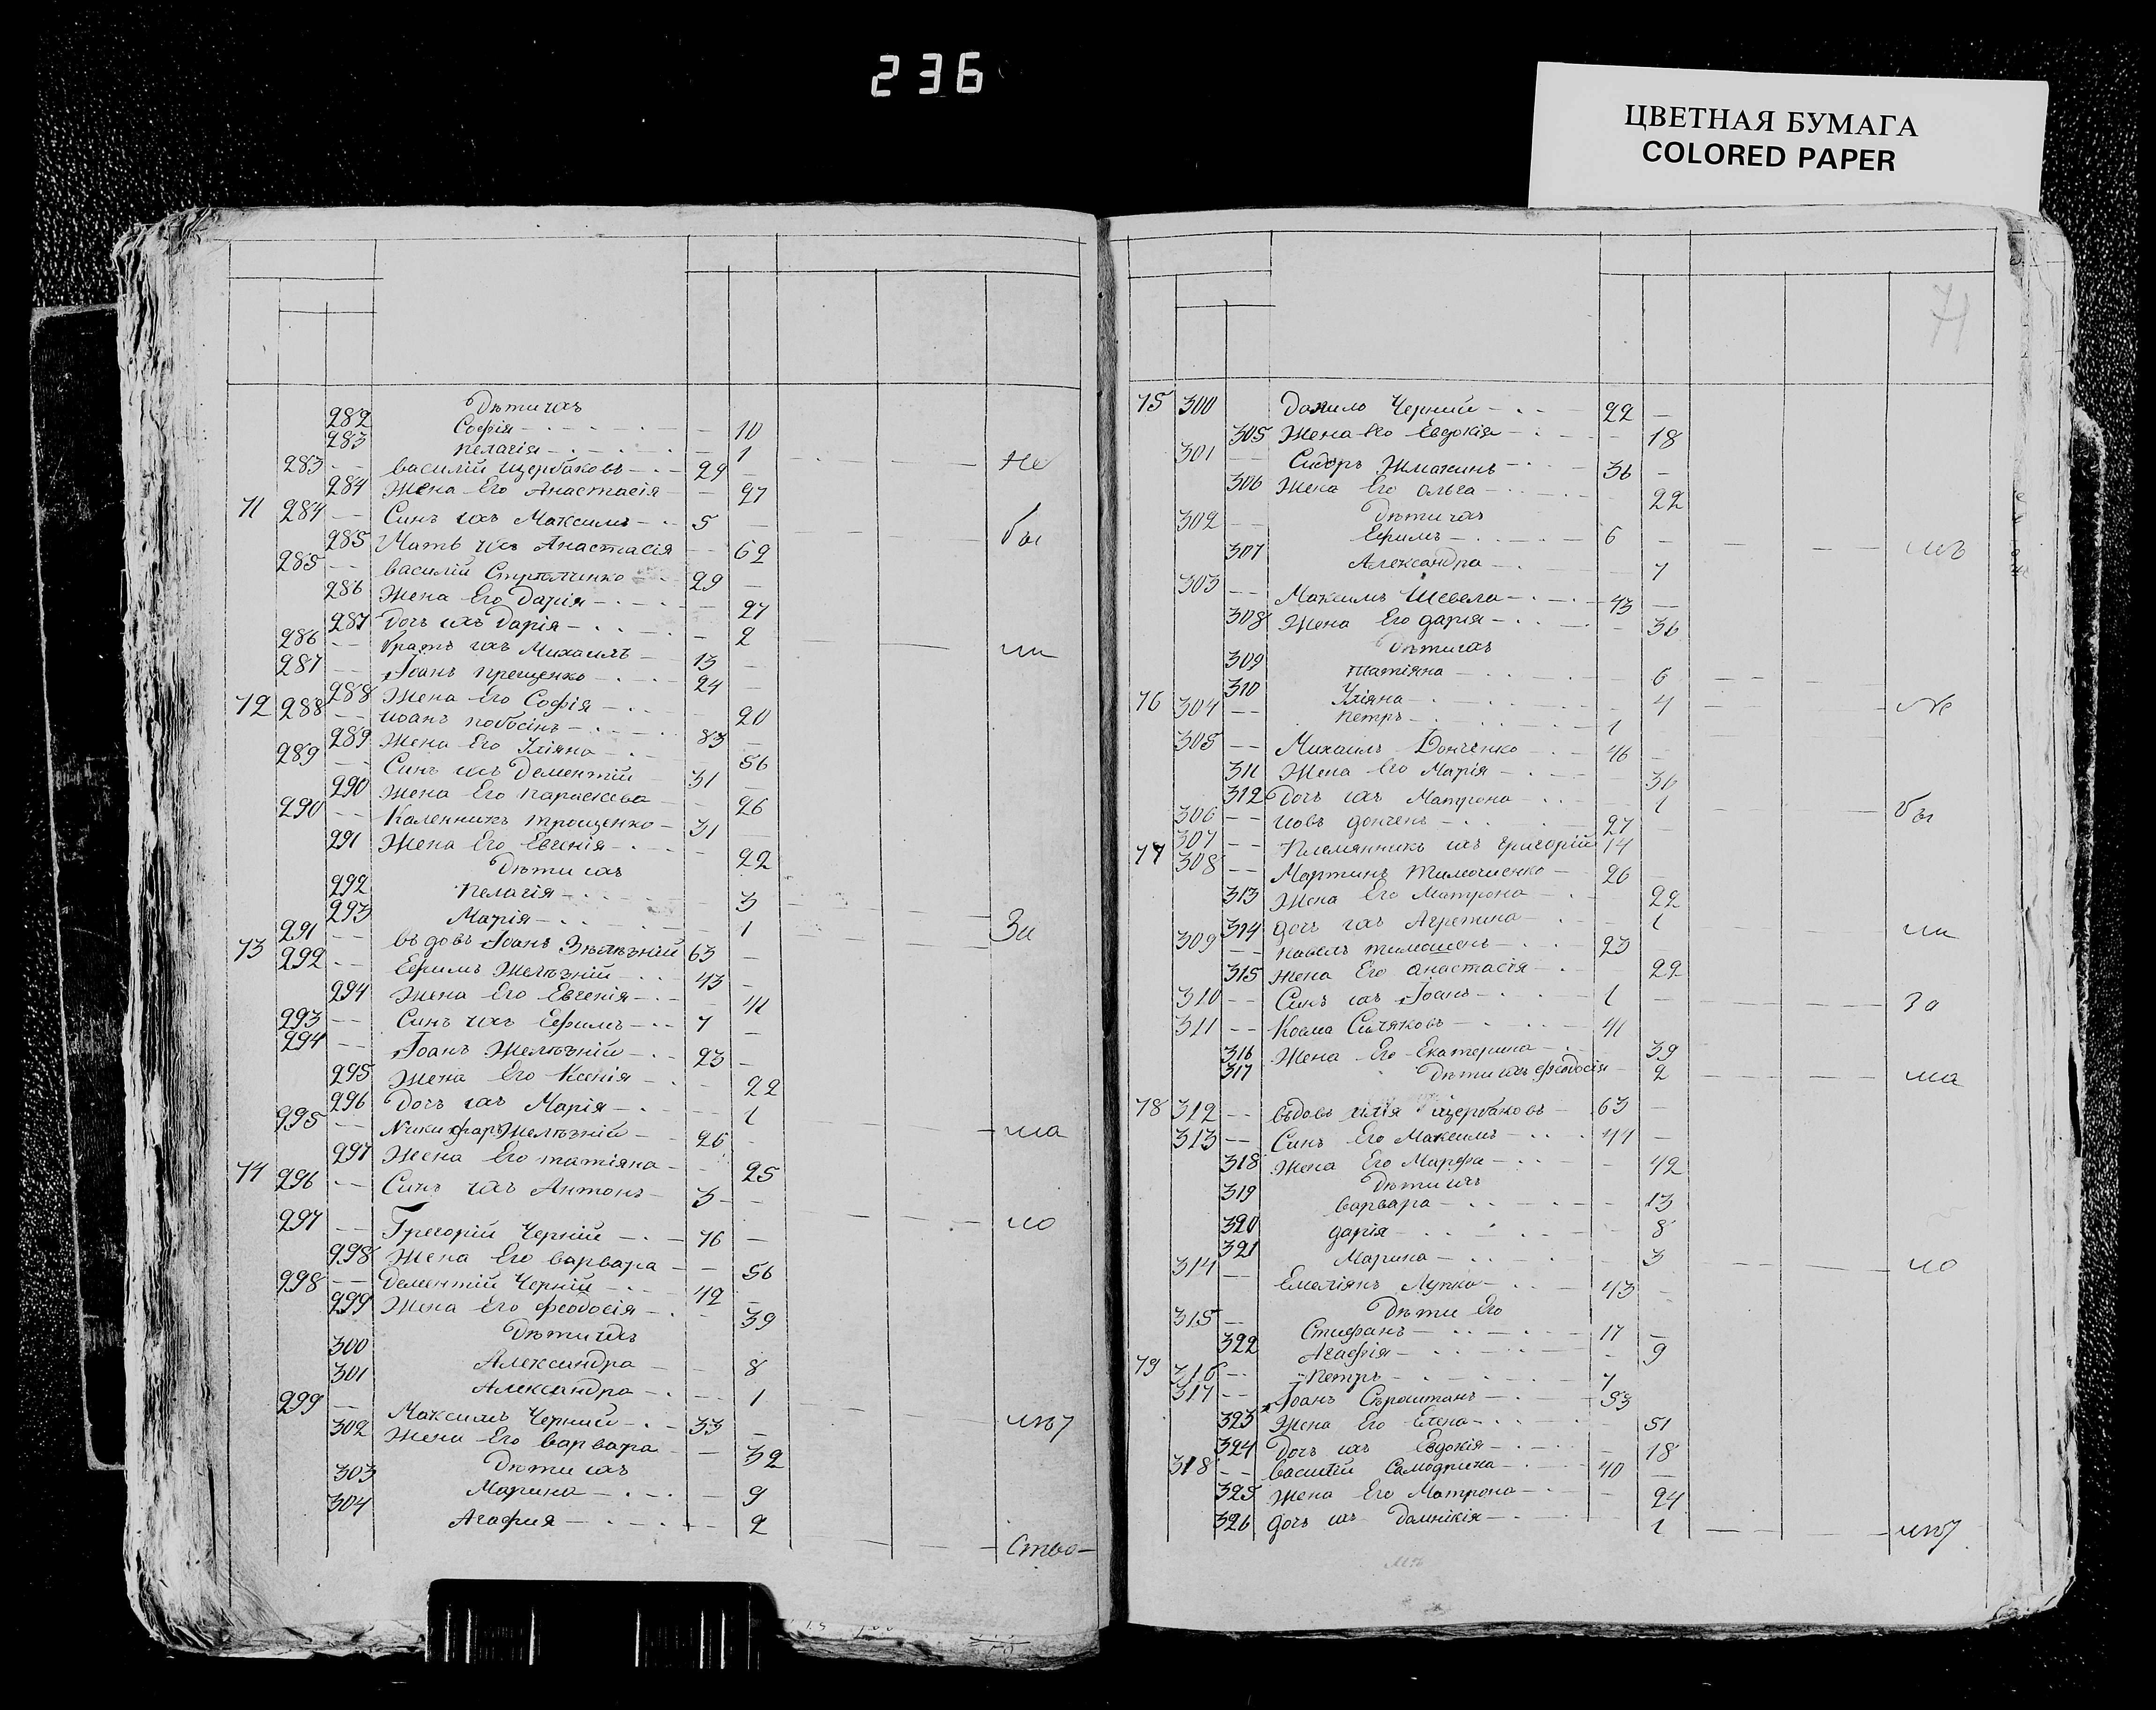 236
ЦВЕТНАЯ БУМАГА
COLORED PAPER
Дѣти ихъ
282 Софія 10
283 Пелагія 1
283 Василій Щербаковъ 29 Не
284 Жена Его Анастасія 27
71 284 Синъ ихъ Максимъ 5
285 Мать ихъ Анастасія 62 бы
285 Василій 29
286 Жена Его Дарія 27
287 Дочь ихъ Дарія 2
286 братъ ихъ Михаилъ 13 ли
287 Іоанъ прещенко 24
288 Жена Его Софія 20
72 288 Иоанъ 83
289 Жена Его Уліяна 56
289 Синъ ихъ Дементій 31
290 Жена Его параскева 26
290 Каленникъ трощенко 31
291 Жена Его Евгенія 22
Дѣти ихъ
292 Пелагія 3
293 Марія 1 За
73 291 вѣдовъ Іоанъ 63
292 Ефимъ Желѣзній 43
294 Жена Его Евгенія 41
293 Синъ ихъ Ефимъ 7
294 Іоанъ Желѣзній 23
295 Жена Его Ксенія 22
296 Дочь ихъ Марія 1
295 Никифаръ Желѣзній 26 ма
297 Жена Его татіяна 25
74 296 Синъ ихъ Антонъ 3
297 Григорій Черній 76 ло
298 Жена Его варвара 56
298 Дементій Черній 42
299 Жена Его феодосія 39
Дѣти ихъ
300 Александра 8
301 Александра 1
299 Максимъ Черній 33
302 Жена Его варвара 32
Дѣти ихъ
303 Марина 9
304 Агафия 2
Ство-
71
75 300 Данило Черній 22
305 Жена его Евдокія 18
301 Сидоръ 36
306 Жена Его Ольга 22
Дѣти ихъ
302 Ефимъ 6
307 Александра 7
303 Максимъ Шевела 43
308 Жена Его дарія 36
Дѣти ихъ
309 татіяна 6
310 Уліяна 4
76 304 Петръ 1 Не
305 Михаилъ Донченко 46
311 Жена Его Марія 36
312 Дочь ихъ Матрона 1
306 Иовъ донченъ 27 бы
307 Племянникъ ихъ григорій 14
77 308 Мартинъ Тимошенко 26
313 Жена Его Матрона 22
314 дочь ихъ Агрепина 1 ли
309 павелъ тимошенъ 23
315 Жена Его анастасія 22
310 Синъ ихъ Іоанъ 1 За
311 Косма 41
316 Жена Его Екатерина 39
317 Дѣти ихъ феодосія 2 ма
78 312 вѣдовъ илія щербаковъ 63
313 Синъ Его Максимъ 44
318 Жена Его Марфа 42
Дѣти ихъ
319 варвара 13
320 дарія 8
321 Марина 3
314 Емеліянъ Лупко 43 ло
Дѣти Его
315 Стифанъ 17
322 Агафія 9
79 316 Петръ 7
317 Іоанъ 53
323 Жена Его Елена 51
324 Дочь ихъ Евдокія 18
318 василій Самодрина 40
325 Жена Его Матрона 24
326 дочь ихъ Домнікія 1